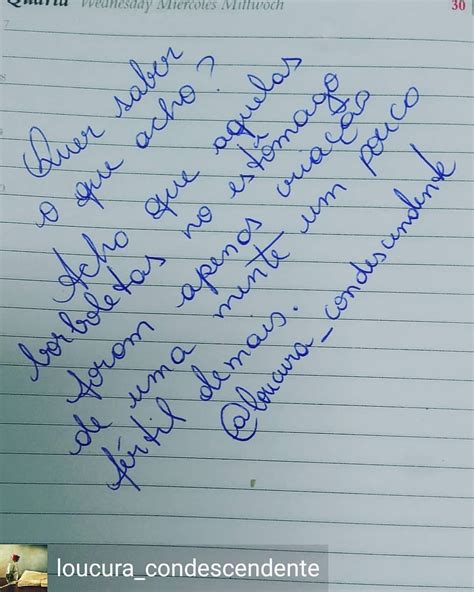 Quarta Wednesday Miércoles Mittwoch
30
7
8
Quer saber
o que acho?
Acho que aquelas
borboletas no estômago
foram apenas criação
de uma mente um pouco
fértil demais.
@loucura_condescendente
loucura_condescendente